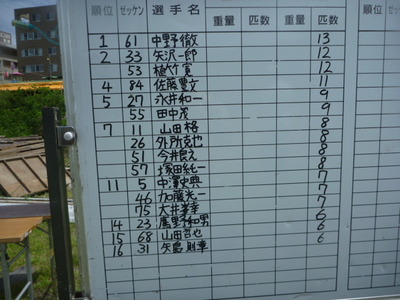 順位 ゼッケン 選手名 重量 匹数 重量 匹数
1 61 中野徹 13
2 33 矢沢一郎 12
53 植竹寛 12
4 84 佐藤豊文 11
5 27 永井和一 9
55 田中茂 9
7 11 山田格 8
26 外所克也 8
51 今井良之 8
57 塚田純一 8
11 5 中澤史典 7
46 加藤光一 7
75 大井 7
14 23 鷹野和男 6
15 68 山田 也 6
16 31 矢島則章 6